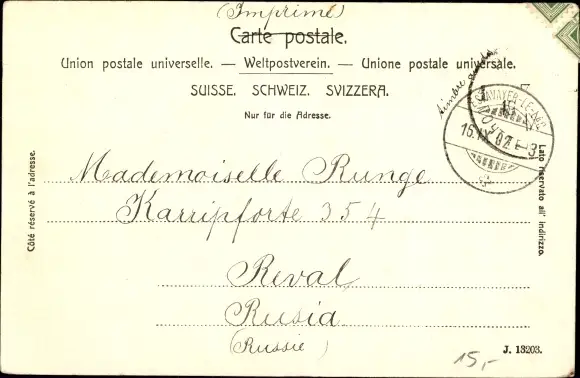 (Imprimé)
Carte postale.
Union postale universelle. — Weltpostverein. — Unione postale universale.
SUISSE. SCHWEIZ. SVIZZERA.
Nur für die Adresse.
timbre
ESTAVAYER-LE-LAC
15.IX.07. 3
Côté réservé à l'adresse.
Lato riservato all' indirizzo.
Mademoiselle Runge
Karripforte 354
Reval
Rusia
(Russie)
15,-
J. 13203.